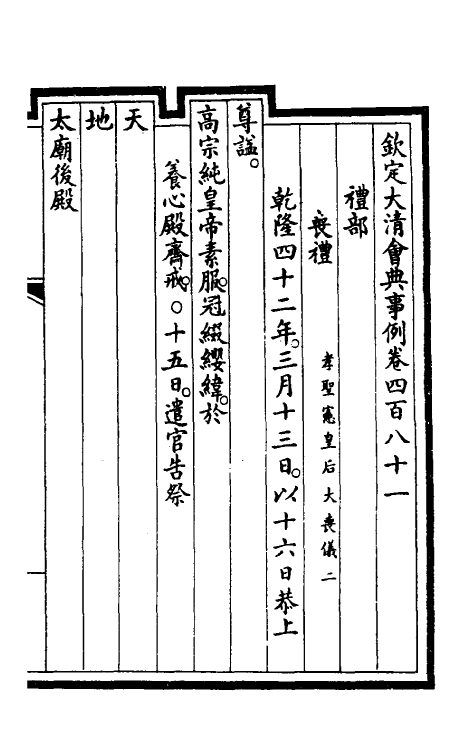 欽定大清會典事例卷四百八十一
禮部
喪禮 孝聖憲皇后大喪儀二
乾隆四十二年。三月十三日。以十六日恭上
尊諡。
高宗純皇帝素服。冠綴纓緯。於
養心殿齋戒。○十五日。遣官告祭
天
地
太廟後殿